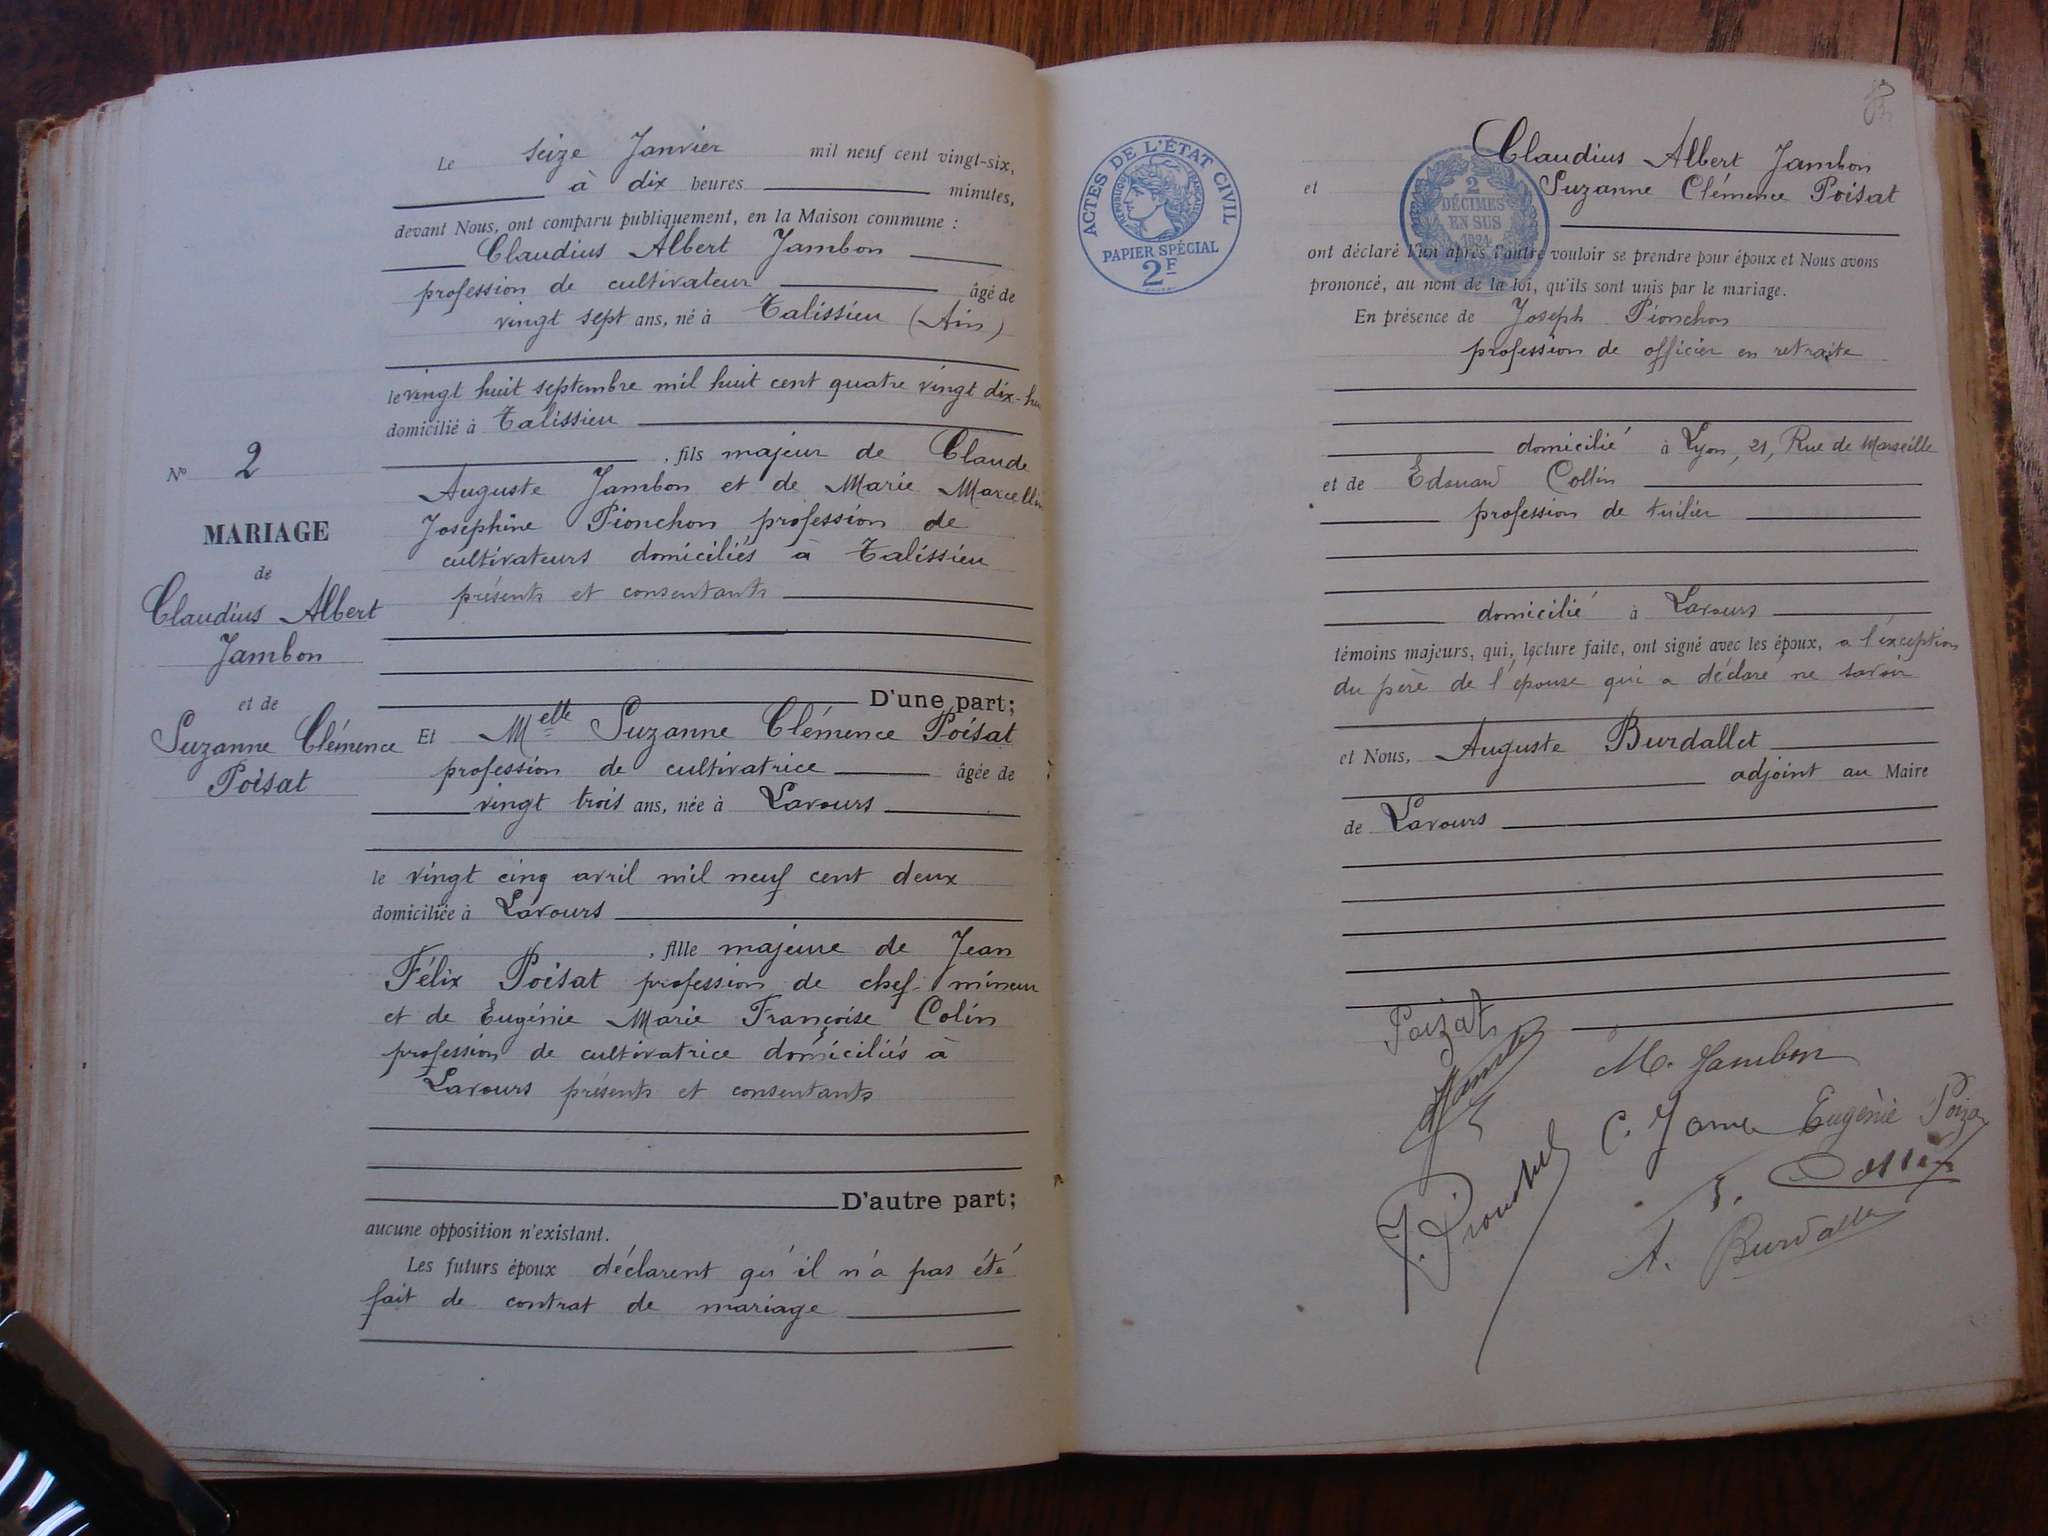 Le seize Janvier mil neuf cent vingt-six,
à dix heures minutes,
devant Nous, ont comparu publiquement, en la Maison commune :
Claudius Albert Jambon
profession de cultivateur âgé de
vingt sept ans, né à Talissieu (Ain)
le vingt huit septembre mil huit cent quatre vingt dix-hu
domicilié à Talissieu
, fils majeur de Claude
Auguste Jambon et de Marie Marcellin
Joséphine Pionchon profession de
cultivateurs domiciliés à Talissieu
présents et consentants
D'une part;
Et Melle Suzanne Clémence Poisat
profession de cultivatrice âgée de
vingt trois ans, née à Lavours
le vingt cinq avril mil neuf cent deux
domiciliée à Lavours
, fille majeure de Jean
Félix Poisat profession de chef-mineur
et de Eugénie Marie Françoise Colin
profession de cultivatrice domiciliés à
Lavours présents et consentants
D'autre part;
aucune opposition n'existant.
Les futurs époux déclarent qu'il n'a pas été
fait de contrat de mariage
N° 2
MARIAGE
de
Claudius Albert
Jambon
et de
Suzanne Clémence
Poisat
ACTES DE L'ÉTAT CIVIL
RÉPUBLIQUE FRANÇAISE
PAPIER SPÉCIAL
2F
2
DÉCIMES
EN SUS
1924
Claudius Albert Jambon
et Suzanne Clémence Poisat
ont déclaré l'un après l'autre vouloir se prendre pour époux et Nous avons
prononcé, au nom de la loi, qu'ils sont unis par le mariage.
En présence de Joseph Pionchon
profession de officier en retraite
domicilié à Lyon, 21, Rue de Marseille
et de Edouard Collin
profession de tuilier
domicilié à Lavours
témoins majeurs, qui, lecture faite, ont signé avec les époux, a l'éxception
du père de l'épouse qui a déclaré ne savoir
et Nous, Auguste Burdallet
adjoint au Maire
de Lavours
Poizat
M. Jambon
C. Jam
Eugènie Poiza
J. Pionchon
A. Burdalle